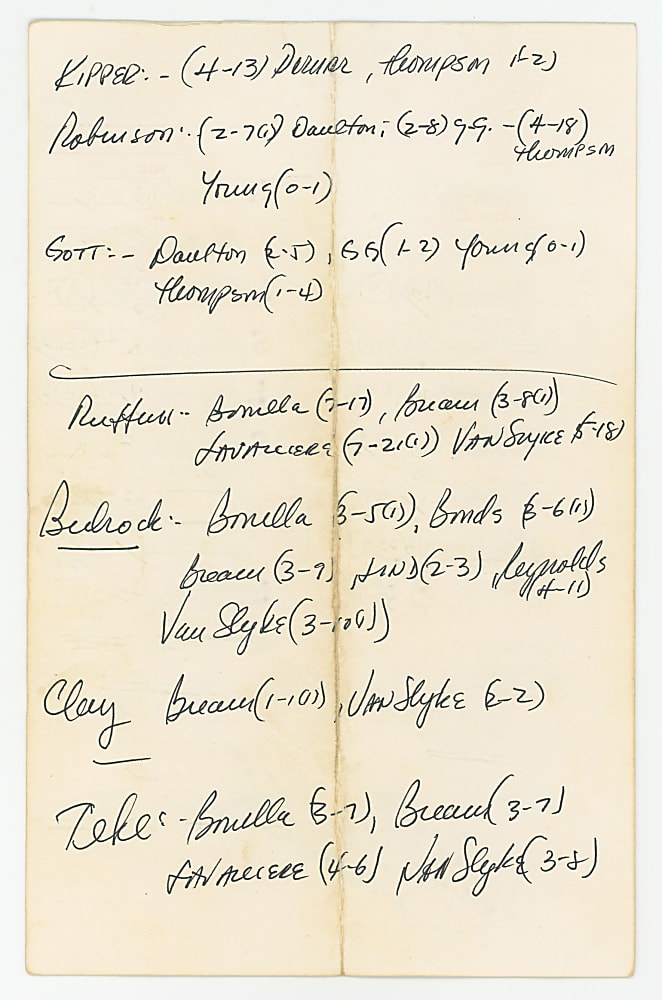 KIPPER:- (4-13) Dernier, Thompson 1-2)
Robinson:- (2-7(1) Daulton; (2-8) G.G. - (4-18)
Thompson
Young (0-1)
GOTT:- Daulton (2-5), GG (1-2) Young (0-1)
Thompson (1-4)
Ruffin-- Bonilla (7-17), Bream (3-8(1)
LAVALLIERE (7-21(1)) VAN SLYKE (5-18)
Bedrock:- Bonilla (3-5(1)), Bonds (3-6(1)
Bream (3-9), LIND (2-3), Reynolds
(4-11)
Van Slyke (3-10(1))
Clay Bream (1-1(1)), VAN Slyke (2-2)
Teke:- Bonilla (3-7), Bream (3-7)
LAVALLIERE (4-6) VAN Slyke (3-8)